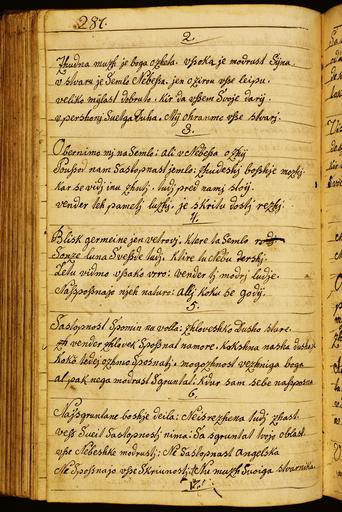 287.
2
muzh je boga ozheta. vsoka je modrust Syna,
v stvaru je Semlo Nebesa. jen ozirou vse leipu,
veliko mylast dobruto. kir da vsem Svoje darij
v pershony Svetga Duha. Nij ohranme vse stvarj.
3.
Obernimo mj na Semlo: ali v Nebesa ozhy
Pousod nam Sastopnast jemlo: zhudeshj boshje mozhj
kar se vidj inu zhutj. tudj pred namj stoij.
vender teh pametj luzhj. je skritu dostj rezhj
4.
Blisk germeine jen vetrovj. ktere ta Semlo
Sonze Luna Sveisde tudj. ktire ta Nebu
Letu vidmo vsako vro: vender tj modrj ludje.
Nasposnajo njeh naturo: alj koku se godij.
5.
Sastopnost Spomin na volla: zhloveshko Dusho
vender zhlovek Sposnat namore. kakshna nasha dusha je
koko tedej ozhmo Sposnatj. mogozhnost vezhniga boga
al pak nega modrust Sgruntat: kdur sam sebe nasposna
6.
Najsgruntane boshje deila: Neisrezhena tudj zhast
vess Sveit Sastopnostj nima: Sa sgruntat tvojo oblast.
vse Nebeshke modrustj: Ne Sastopnast Angelska
Ne Sposnajo vse Skrivnustj: Nu muzh Svoiga stvarnika.